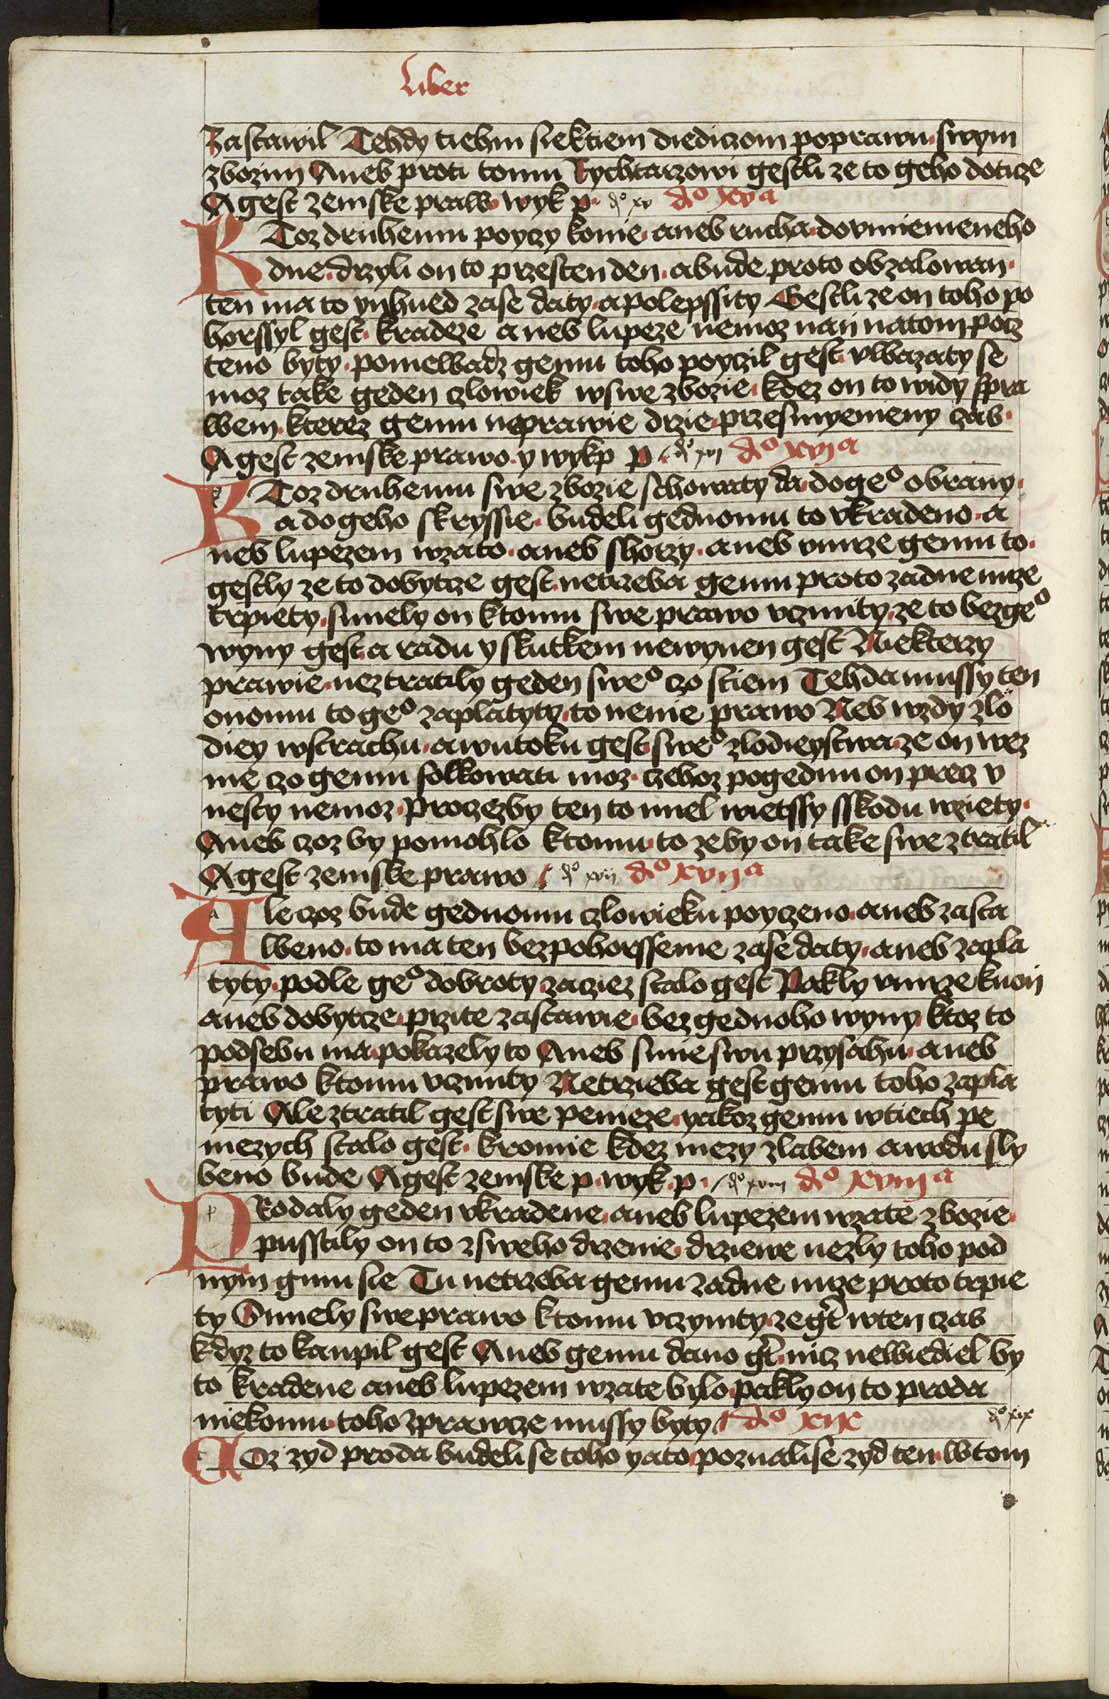 Liber
zastawil Tehdy tiehni siektiem diediczom poprawu swym
zbozim Aneb proti tomu Rychtarzowi gestli ze to geho doticze
A gest zemske praw wyk p d° xv d° xv a
KToz druhemu poyczy konie aneb rucha do vmienieneho
dne drzyli on to przes ten den a bude proto obzalowan
ten ma to ynhned zase daty a polepssity Gestli ze on toho po
horssyl gest kradeze aneb lupeze nemoz nan natom pocz
teno byty poniewadz gemu toho poyczil gest vwazaty se
moz take geden czlowiek wswe zbozie kdez on to widy spra
wem kterez gemu neprawie drzie przes wymieneny czas
A gest zemske prawo y wykp p d° xvi d° xvj a
KToz druhemu swe zbozie schowaty da do ge° obrany
a do geho skryssie budeli gednomu to vkradeno a
neb lupezem wzato aneb shorzy aneb vmrze gemu to
gestly ze to dobytcze gest netrzeba gemu proto zadne nuze
trpiety smiely on ktomu swe prawo vczinity ze to bez ge°
wyny gest a radu y skutkem newynen gest Niekterzy
prawie neztratily geden swe° czo stiem Tehda mussy ten
onomu to ge° zaplatyty to nenie prawo Neb wzdy zlo
diey wstrachu a wutoku gest swe° zlodieystwa ze on wez
me czo gemu folkowati moz czehoz pogednu on precz v
nesty nemoz proczezby ten to miel wietssy sskodu wziety
Aneb czoz by pomohlo ktomu to zeby on take swe ztratil
A gest zemske prawo d° xvii d° xvij a
Ale czoz bude gednomu czlowieku poyczeno aneb zasta
weno to ma ten bezpohorssenie zase daty aneb zapla
tyty podle ge° dobroty zacziez stalo gest Pakly vmrze kuon
aneb dobytcze przi te zastawie bez gednoho wyny ktoz to
podsebu ma pokazely to Aneb smie swu przysahu aneb
prawo ktomu vczinity Netrzieba gest gemu toho zapla
tyti Ale ztratil gest swe penieze yakoz gemu wtiech pe
niezych stalo gest kromie kdez mezy zlabem a wodu sly
beno bude A gest zemske p wyk p d° xviii d° xviij a
PRodaly geden vkradene aneb lupezem wzate zbozie
pusstily on to zsweho drzenie drziewe nezly toho pod
nym gmu sie Tu netrzeba gemu zadne nuze proto trpie
ty Smiely swe prawo ktomu vczynity ze gt wten czas
kdyz to kaupil gest Aneb gemu dano gt nicz newiediel by
to kradene aneb lupezem wzate bylo pakly on to proda
niekomu toho zprawcze mussy byty d° xix d° xix
COz zyd proda budeli se toho yato poznalise zyd ten wtom